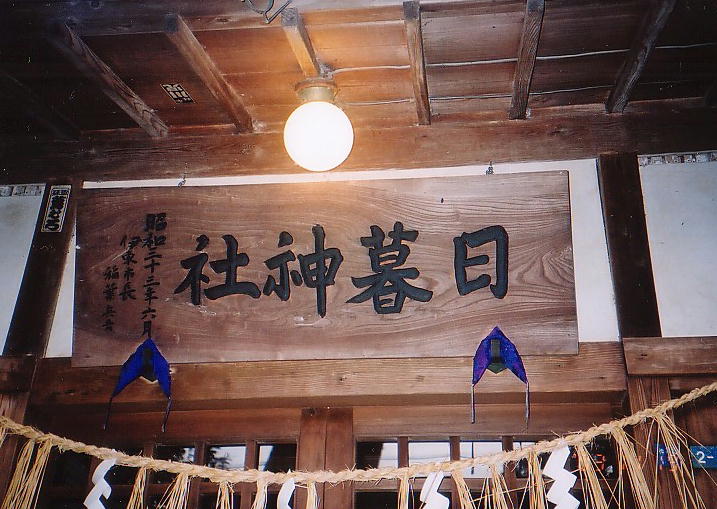 日暮神社
昭和三十三年六月
伊東市長
稲葉
2-